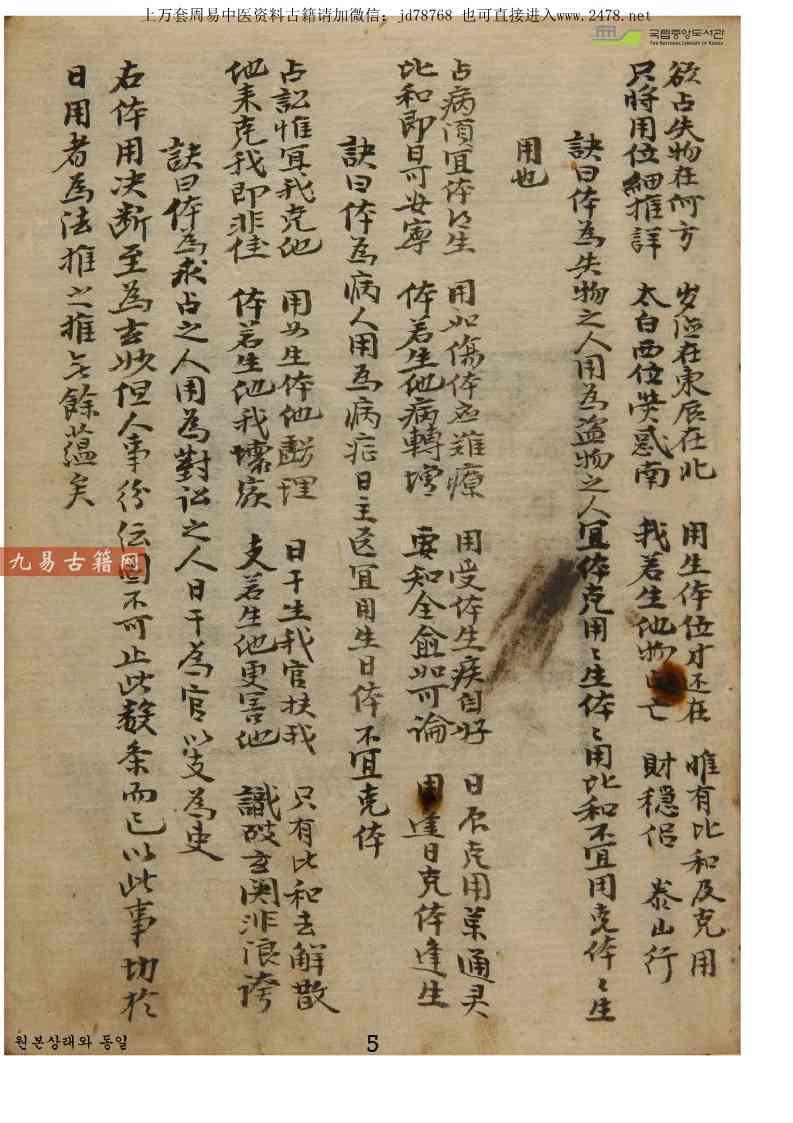 上万套周易中医资料古籍请加微信：jd78768 也可直接进入www.2478.net
국립중앙도서관
THE NATIONAL LIBRARY OF KOREA
欲占失物在何方 岁德在東辰在北 用生体位才还在 唯有比和及克用
只將用位細推詳 太白西位熒惑南 我若生他物 亡 財穩侶泰山行
訣曰体為失物之人用為盗物之人宜体克用〻生体〻用比和不宜用克体〻生
用也
占病須宜体 生 用如傷体 難療 用受体生疾自好 日辰克用藥通灵
比和即日可安寧 体若生他病轉增 要知全愈如何論 用逢日克体逢生
訣曰体為病人用為病症日主医宜用生日体不宜克体
占訟惟宜我克他 用如生体他 理 日干生我官扶我 只有比和去解散
他来克我即非佳 体若生他我壞家 支若生他更害他 識破玄関非浪誇
訣曰体為求占之人用為對訟之人日干為官以支為吏
右体用决断至為玄妙但人事紛紜 不可止此数条而已以此事切於
日用者為法推之推 餘蘊矣
九易古籍网
원본상태와 동일
5